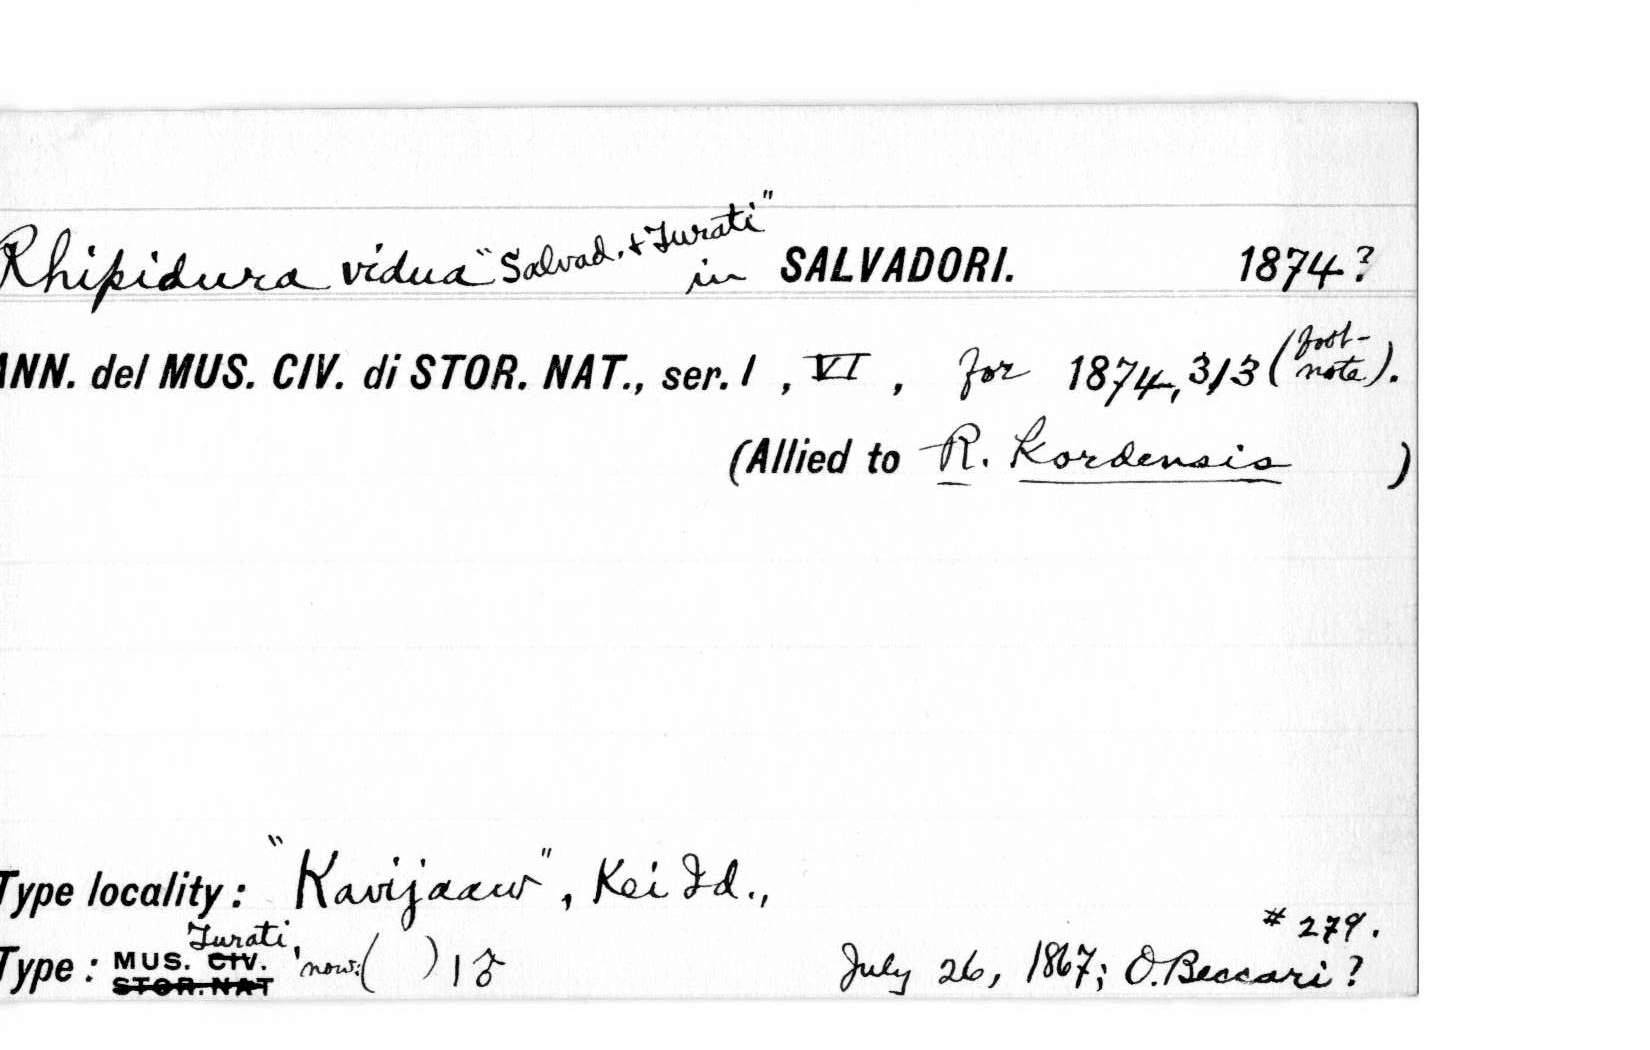 Rhipidura vidua "Salvad. & Turati" in SALVADORI. 1874?
ANN. del MUS. CIV. di STOR. NAT., ser. I, VI, for 1874, 313 (foot-note).
(Allied to R. Kordensis )
Type locality: "Kavijaaw", Kei Id.,
# 279.
Type: MUS. Turati, CIV. STOR. NAT 'now:( ) 1 July 26, 1867; O. Beccari?